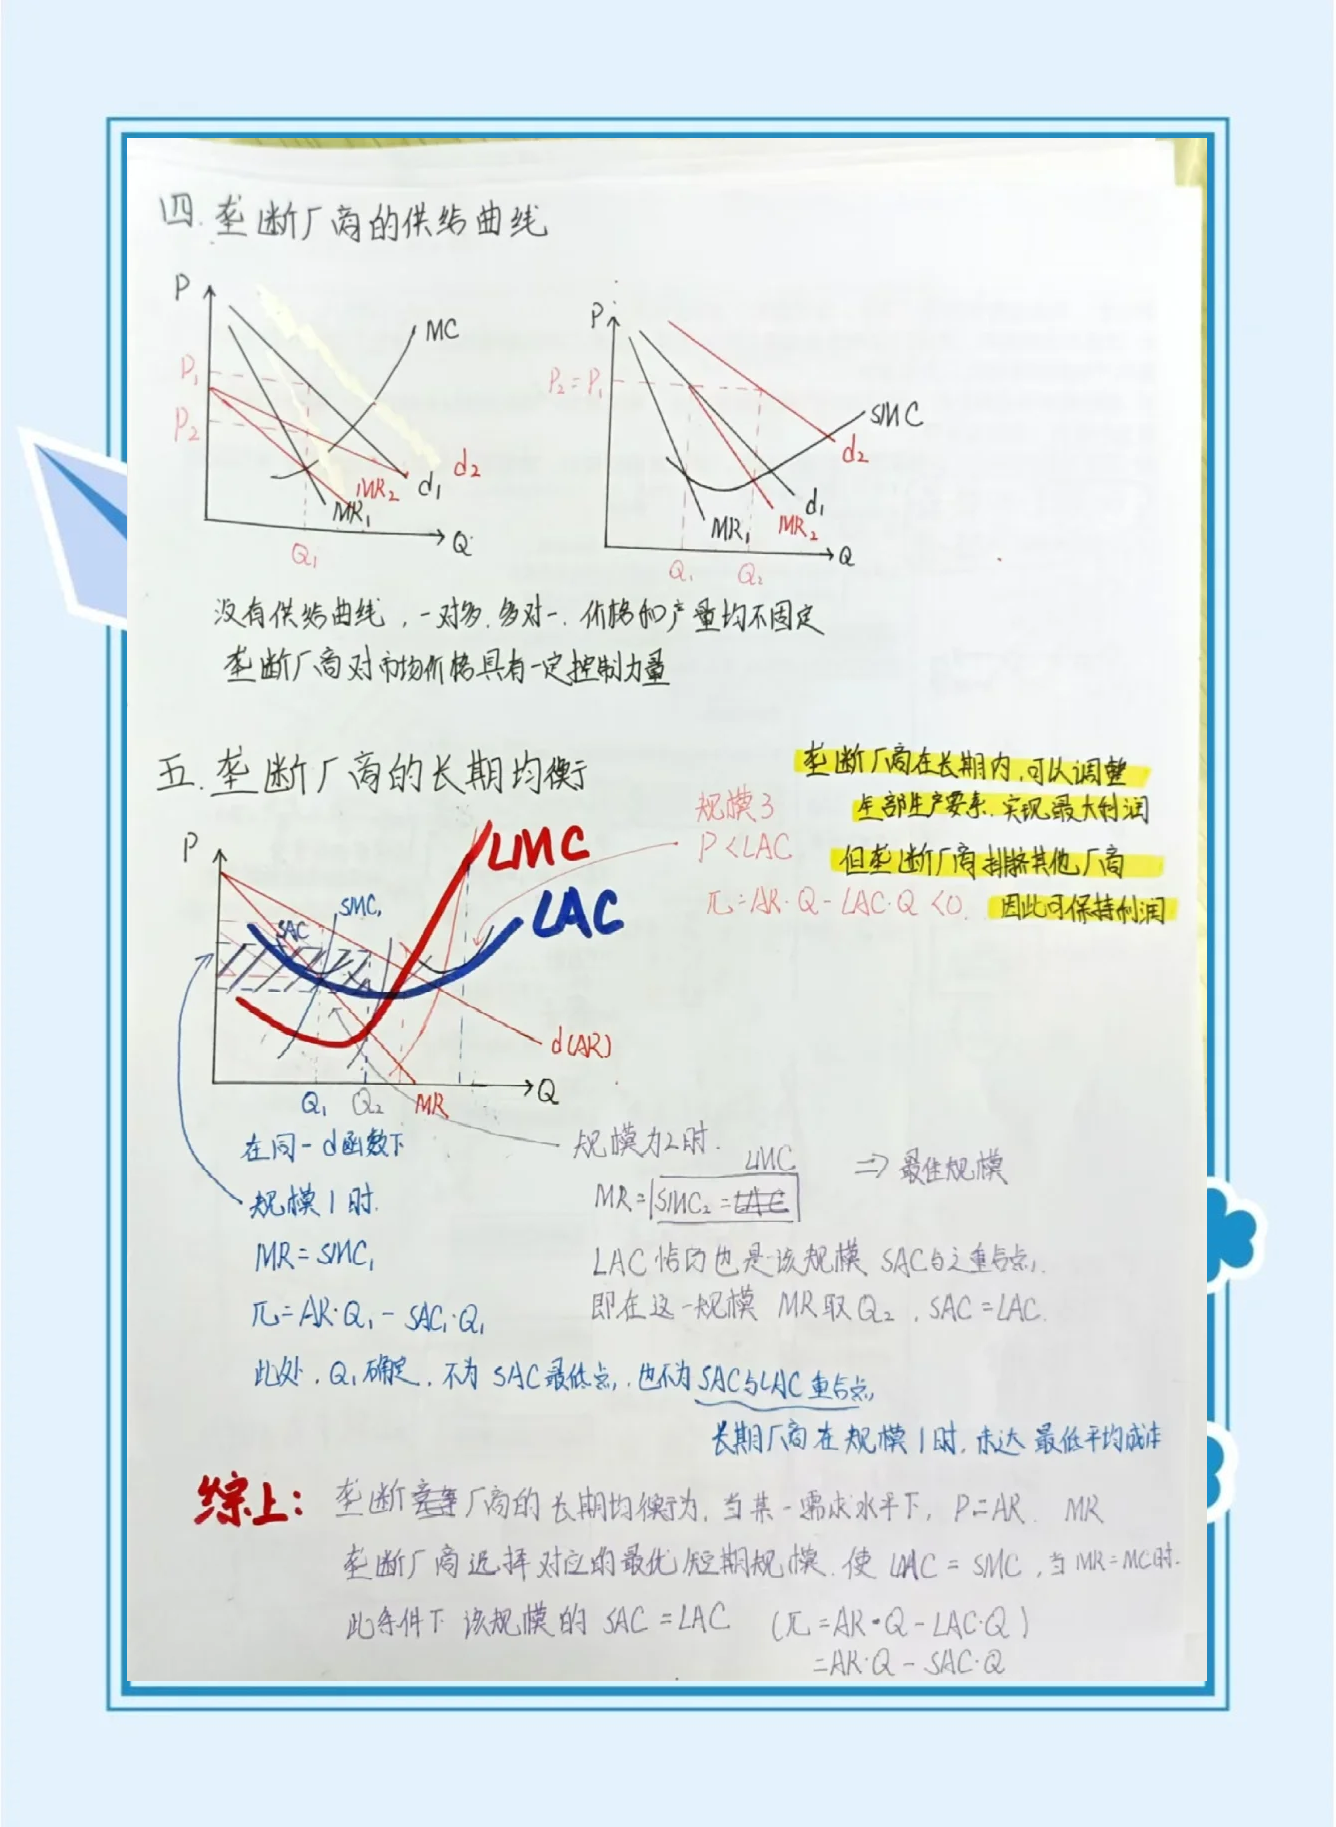 四.垄断厂商的供给曲线
P
MC
P₁
P₂
d₂
MR₂
d₁
MR₁
Q
Q₁
P
P₂=P₁
SMC
d₂
d₁
MR₁
MR₂
Q
Q₁
Q₂
没有供给曲线，一对多.多对一.价格和产量均不固定
垄断厂商对市场价格具有一定控制力量
五.垄断厂商的长期均衡
垄断厂商在长期内,可以调整
全部生产要素.实现最大利润
但垄断厂商排除其他厂商
因此可保持利润
规模3
P<LAC
π=AR·Q-LAC·Q<0.
P
LMC
SMC₁
SAC
LAC
d(AR)
Q
Q₁
Q₂
MR
在同一d函数下
规模1时.
MR=SMC₁
π=AR·Q₁-SAC₁·Q₁
此处.Q₁确定.不为SAC最低点.也不为SAC与LAC重合点,
长期厂商在规模1时.未达最低平均成本
规模为2时.
LMC
MR=SMC₂=LAC
⇒最佳规模
LAC恰切也是该规模SAC与之重合点.
即在这一规模 MR取Q₂.SAC=LAC.
综上:
垄断竞争厂商的长期均衡为.当某一需求水平下,P=AR. MR
垄断厂商选择对应的最优短期规模.使LMC=SMC,当MR=MC时.
此条件下该规模的SAC=LAC (π=AR·Q-LAC·Q)
=AR·Q-SAC·Q